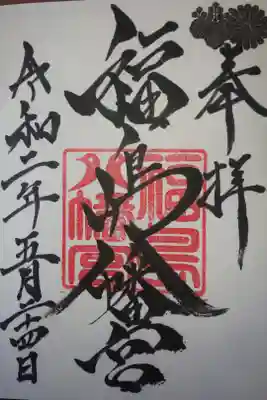 奉拝
福島八幡宮
福島
八幡宮
令和二年五月二十四日